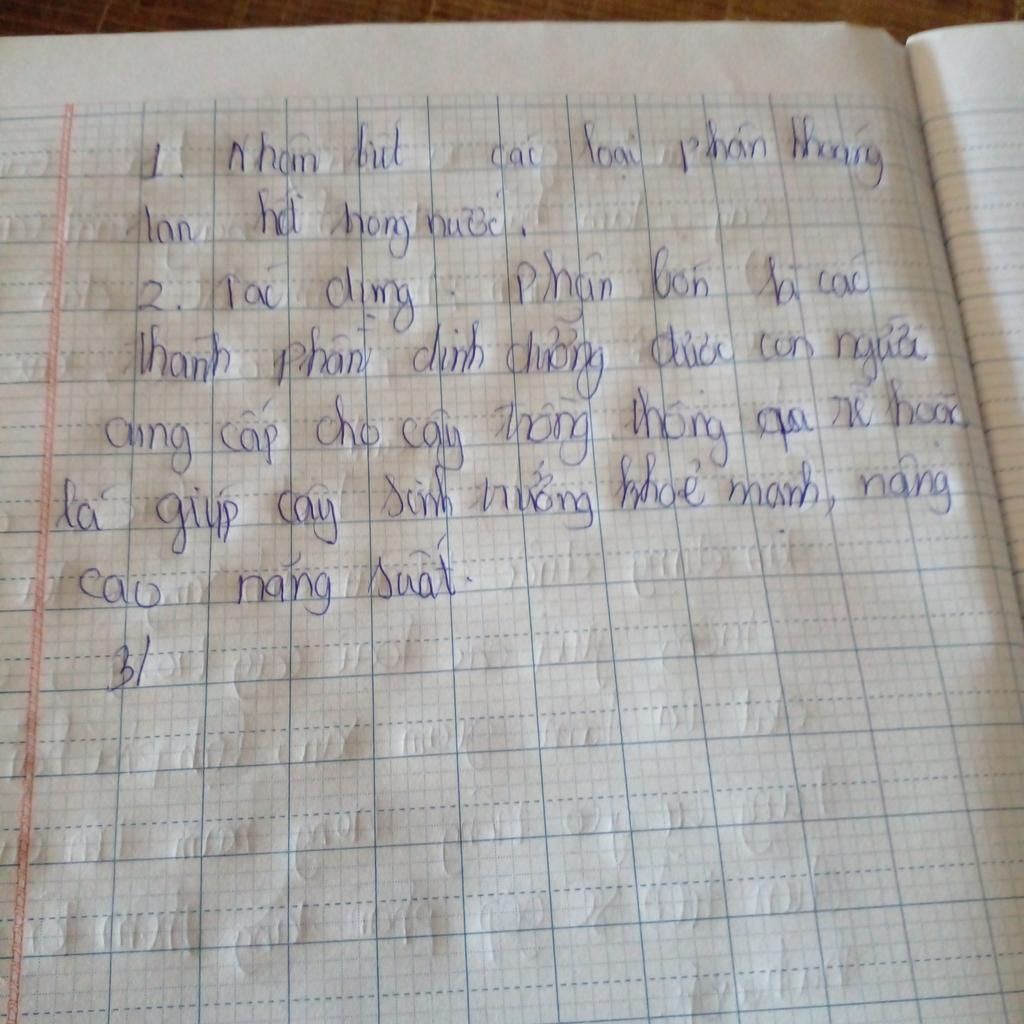 1. Nhận biết các loại phân khoáng
tan hết trong nước.
2. Tác dụng : Phân bón là các
thành phần dinh dưỡng được con người
cung cấp cho cây trồng thông qua rễ hoặc
lá giúp cây sinh trưởng khoẻ mạnh, nâng
cao năng suất.
3/